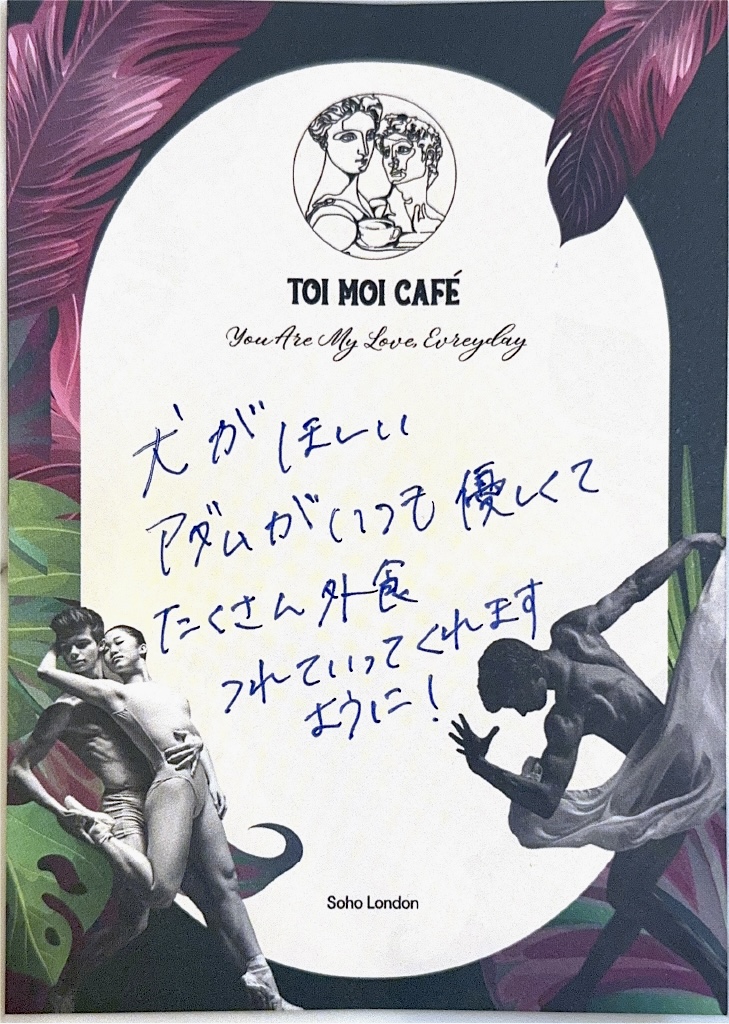 TOI MOI CAFÉ
You Are My Love, Evreyday
犬がほしい
アダムがいつも優しくて
たくさん外食
つれていってくれます
ように!
Soho London